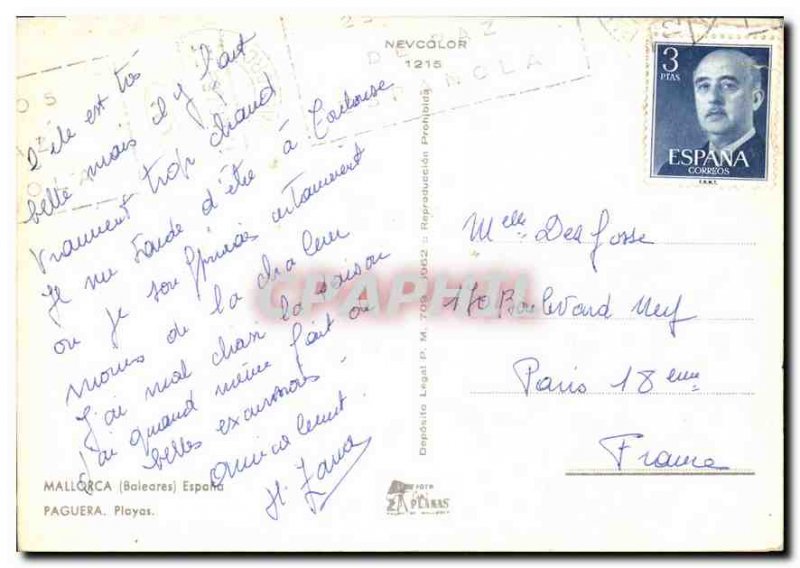 NEVCOLOR
1215
DE PAZ
ESPAÑOLA
3
PTAS
ESPAÑA
CORREOS
F.N.M.T.
L'ile est très
belle mais il y fait
vraiment trop chaud
Je me tarde d'être à Toulouse
où je souffrirai certainement
moins de la chaleur
J'ai mal choisi la saison
J'ai quand même fait de
belles excursions.
amicalement.
H.
Melle Delfosse
170 Boulevard Ney
Paris 18 eme
France
CPAPHIL
Depósito Legal P. M. 709 - 1962 = Reproducción Prohibida
MALLORCA (Baleares) España
PAGUERA. Playas.
FOTO
PLANAS